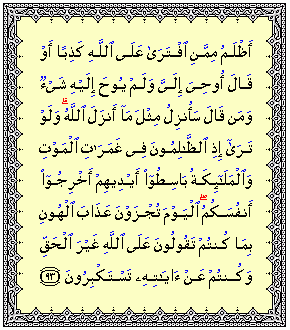 أَظْلَمُ مِمَّنِ ٱفْتَرَىٰ عَلَى ٱللَّهِ كَذِبًا أَوْ
قَالَ أُوحِىَ إِلَىَّ وَلَمْ يُوحَ إِلَيْهِ شَىْءٌ
وَمَن قَالَ سَأُنزِلُ مِثْلَ مَآ أَنزَلَ ٱللَّهُ ۗ وَلَوْ
تَرَىٰٓ إِذِ ٱلظَّٰلِمُونَ فِى غَمَرَٰتِ ٱلْمَوْتِ
وَٱلْمَلَٰٓئِكَةُ بَاسِطُوٓا۟ أَيْدِيهِمْ أَخْرِجُوٓا۟
أَنفُسَكُمُ ۖ ٱلْيَوْمَ تُجْزَوْنَ عَذَابَ ٱلْهُونِ
بِمَا كُنتُمْ تَقُولُونَ عَلَى ٱللَّهِ غَيْرَ ٱلْحَقِّ
وَكُنتُمْ عَنْ ءَايَٰتِهِۦ تَسْتَكْبِرُونَ ٩٣